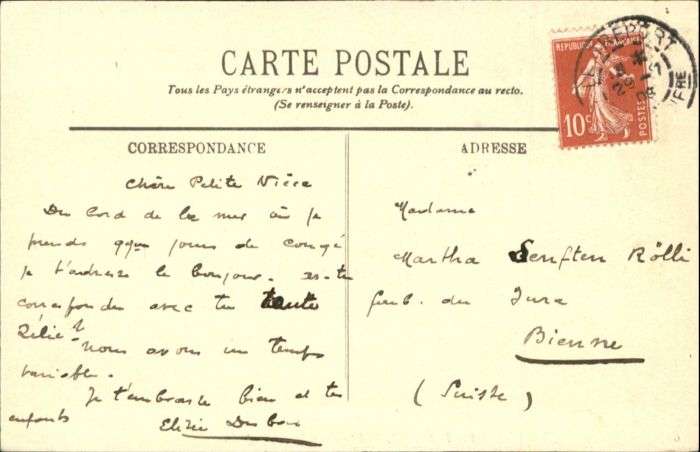 CARTE POSTALE
Tous les Pays étrangers n'acceptent pas la Correspondance au recto.
(Se renseigner à la Poste).
REPUBLIQUE FRANÇAISE
10c
CORRESPONDANCE
Chère Petite Nièce
Du bord de la mer où je
prends qque jours de congé
je t'adresse le bonjour. es-tu
correspondu avec ta tante
Zélie?
Nous avons un temps
variable.
Je t'embrasse bien et tes
enfants
ADRESSE
Madame
Martha Senften Rölli
du Jura
Bienne
(Suisse)